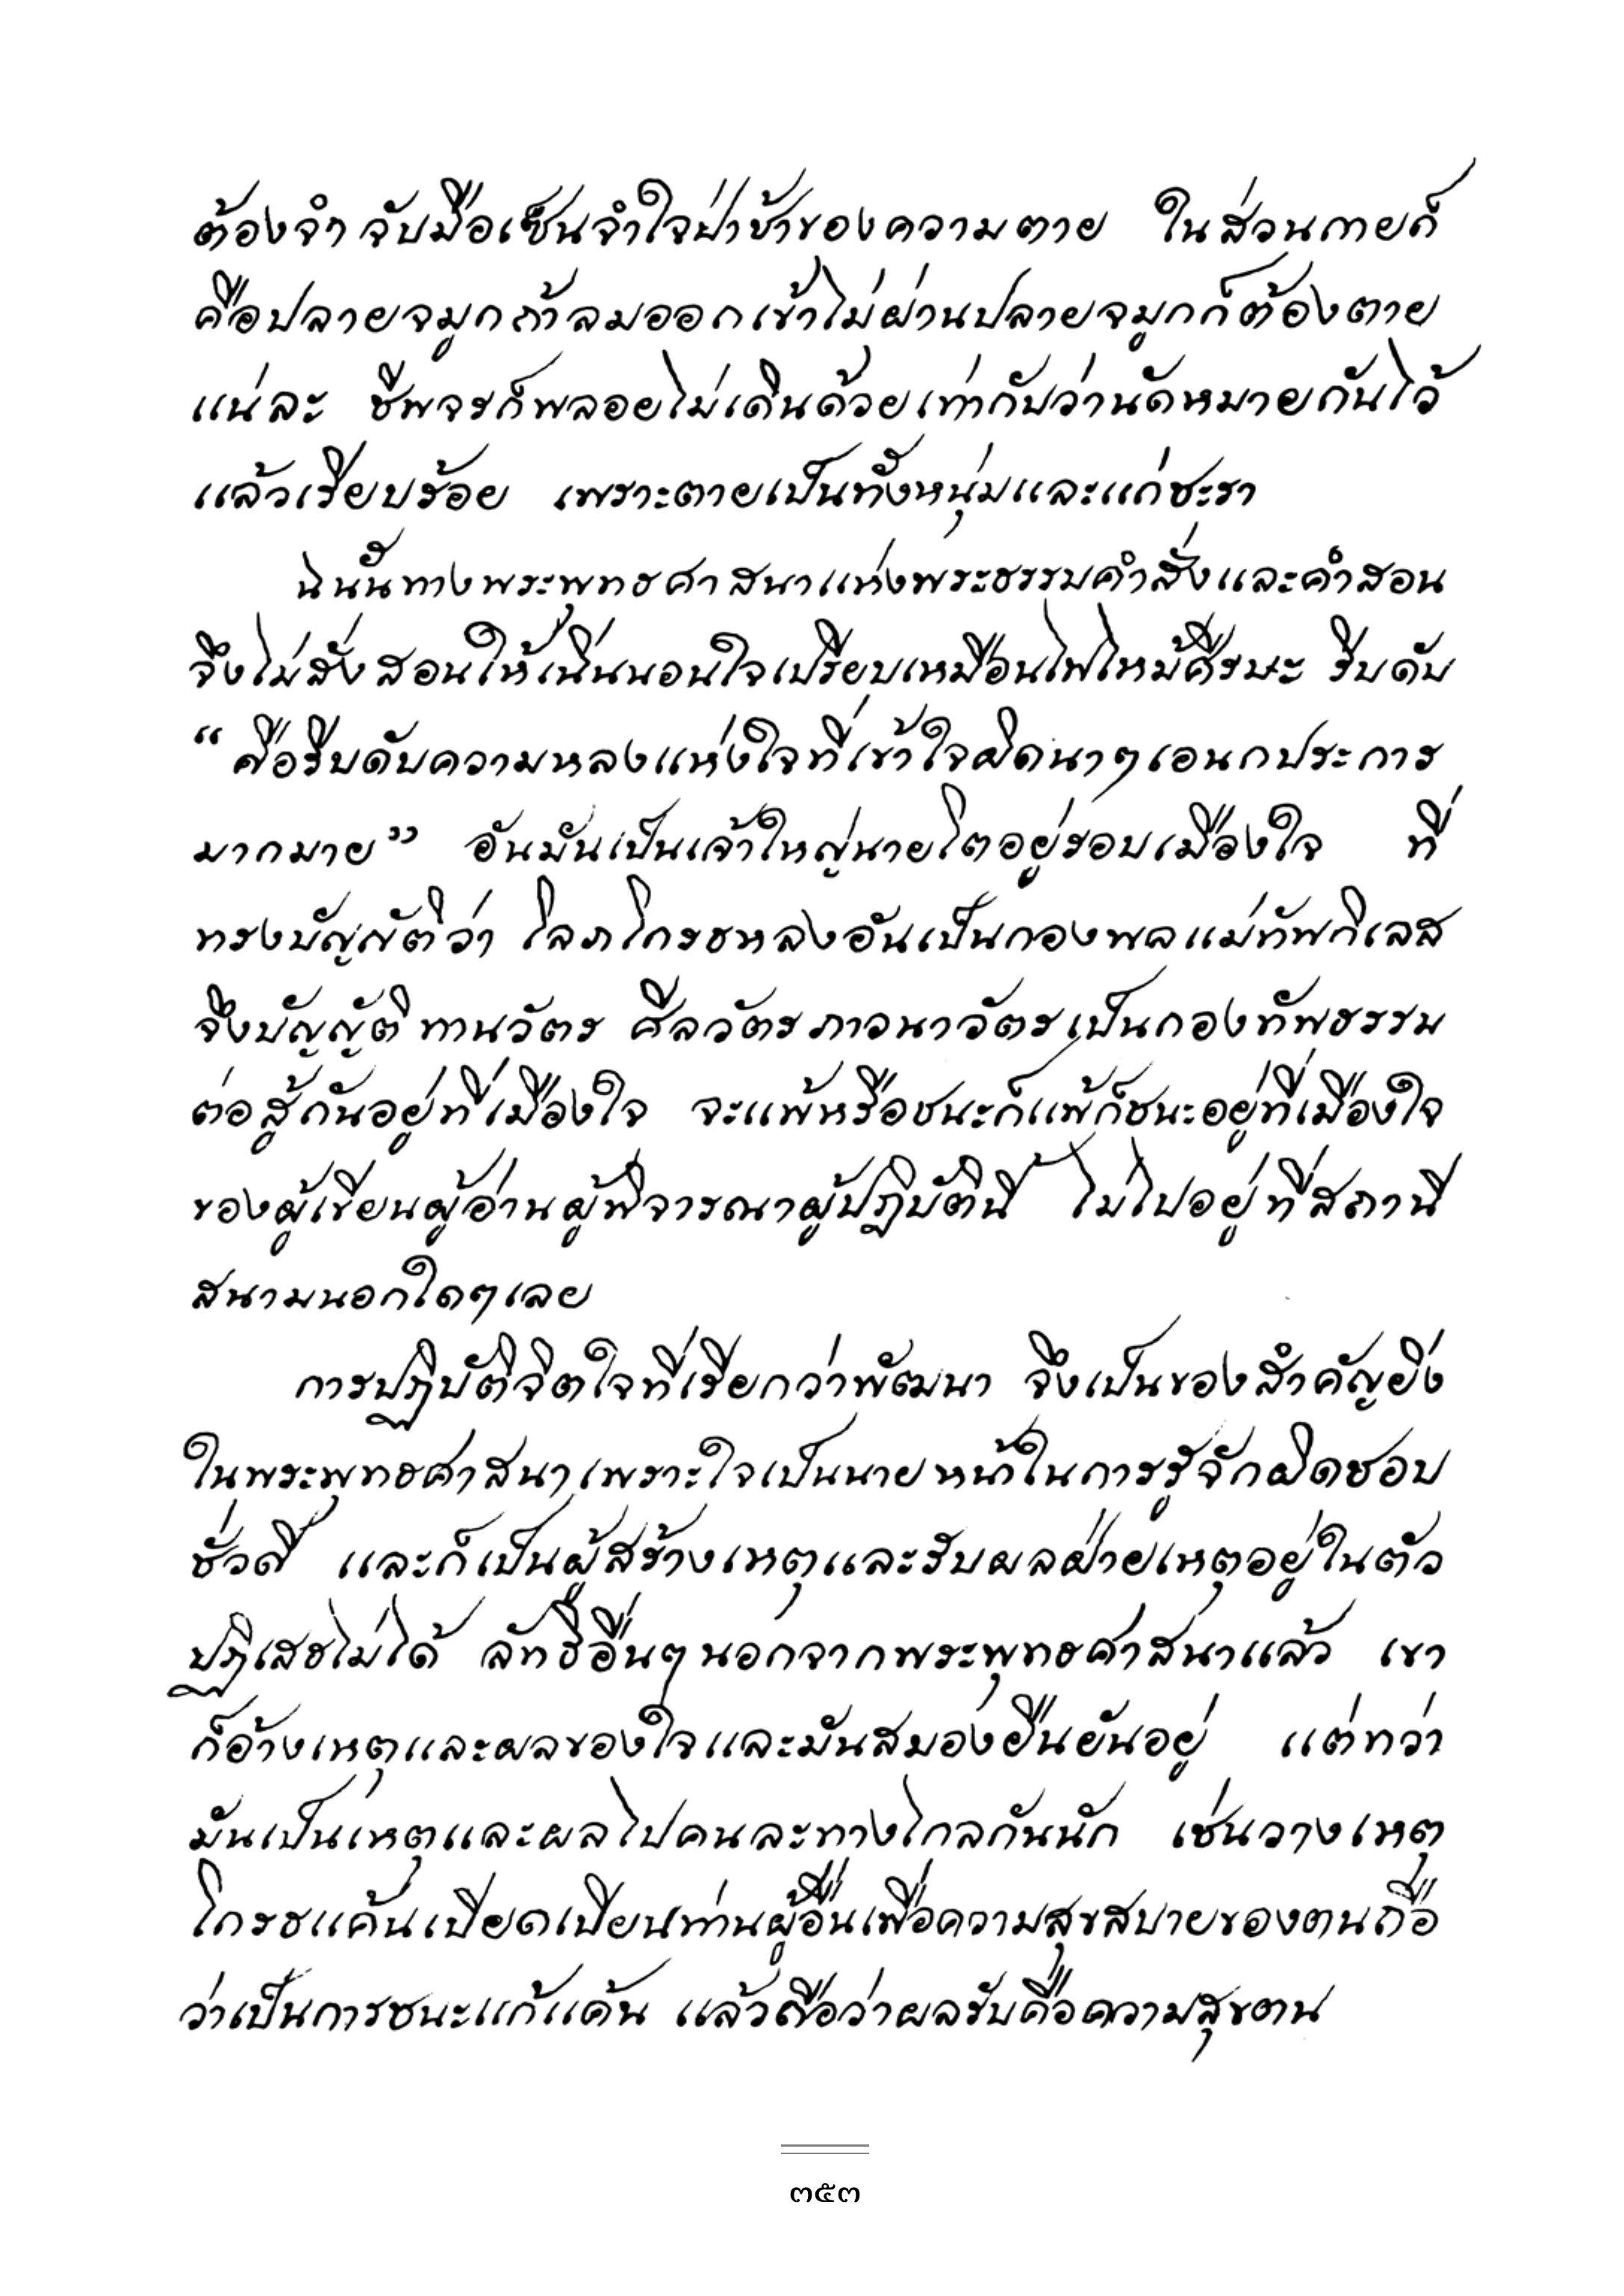 ต้องจำ จับมือเซ็นจำใจป่าช้าของความตาย ในส่วนกายก็
คือปลายจมูกถ้าลมออกเข้าไม่ผ่านปลายจมูกก็ต้องตาย
แน่ละ ชีพจรก็พลอยไม่เดินด้วยเท่ากับว่านัดหมายกันไว้
แล้วเรียบร้อย เพราะตายเป็นทั้งหนุ่มและแก่ชะรา
ฉนั้นทางพระพุทธศาสนาแห่งพระธรรมคำสั่งและคำสอน
จึงไม่สั่งสอนให้เนิ่นนอนใจเปรียบเหมือนไฟไหม้ศีรษะ รีบดับ
“คือรีบดับความหลงแห่งใจที่เข้าใจผิดนาๆเอนกประการ
มากมาย” อันมันเป็นเจ้าใหญ่นายโตอยู่รอบเมืองใจ ที่
ทรงบัญญัติว่า โลภโกรธหลงอันเป็นกองพลแม่ทัพกิเลส
จึงบัญญัติ ทานวัตร ศีลวัตรภาวนาวัตรเป็นกองทัพธรรม
ต่อสู้กันอยู่ที่เมืองใจ จะแพ้หรือชนะก็แพ้ก็ชนะอยู่ที่เมืองใจ
ของผู้เขียนผู้อ่านผู้พิจารณาผู้ปฏิบัตินี้ ไม่ไปอยู่ที่สถานี
สนามนอกใดๆเลย
การปฏิบัติจิตใจที่เรียกว่าพัฒนา จึงเป็นของสำคัญยิ่ง
ในพระพุทธศาสนาเพราะใจเป็นนายหน้าในการรู้จักผิดชอบ
ชั่วดี และก็เป็นผู้สร้างเหตุและรับผลฝ่ายเหตุอยู่ในตัว
ปฏิเสธไม่ได้ ลัทธิอื่นๆนอกจากพระพุทธศาสนาแล้ว เขา
ก็อ้างเหตุและผลของใจและมันสมองยืนยันอยู่ แต่ทว่า
มันเป็นเหตุและผลไปคนละทางไกลกันนัก เช่นวางเหตุ
โกรธแค้นเบียดเบียนท่านผู้อื่นเพื่อความสุขสบายของตนถือ
ว่าเป็นการชนะแก้แค้น แล้วถือว่าผลรับคือความสุขตน
๓๕๓